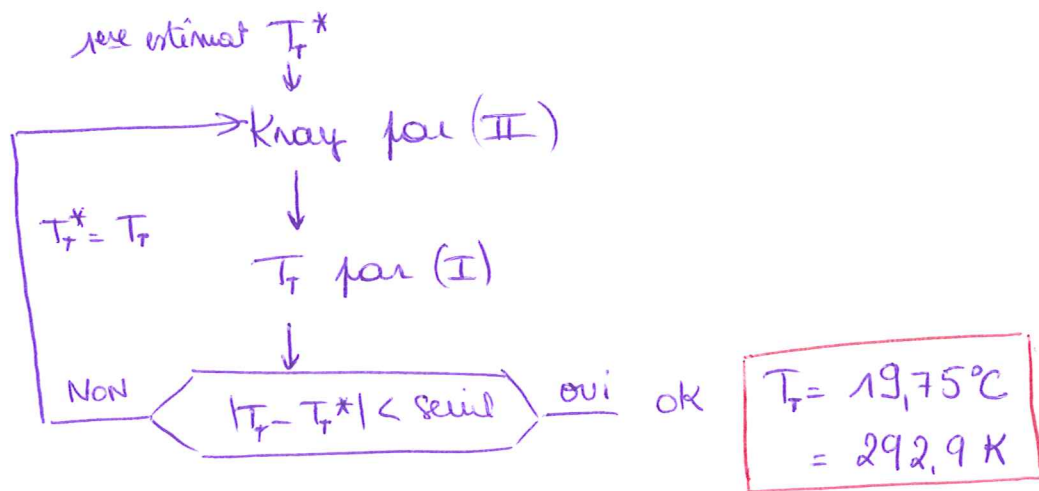 1ere estimat T_T*
Kray par (II)
T_T* = T_T
T_T par (I)
NON
|T_T - T_T*| < seuil
oui
OK
T_T = 19,75°C
= 292,9 K